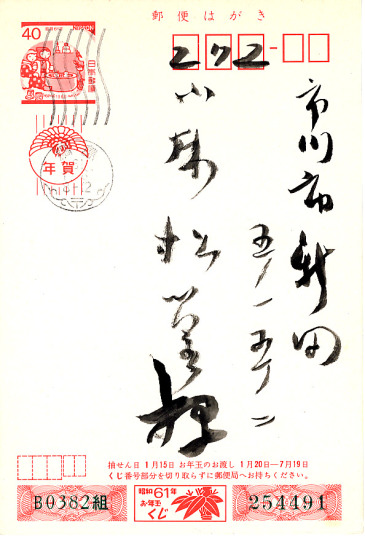 郵便はがき
40
NIPPON
日本郵便
年賀
272
市川市新田
五ノ一五ノ二
小
松
様
抽せん日 1月15日 お年玉のお渡し 1月20日―7月19日
くじ番号部分を切り取らずに郵便局へお持ちください。
B0382組
昭和61年
お年玉
くじ
254491